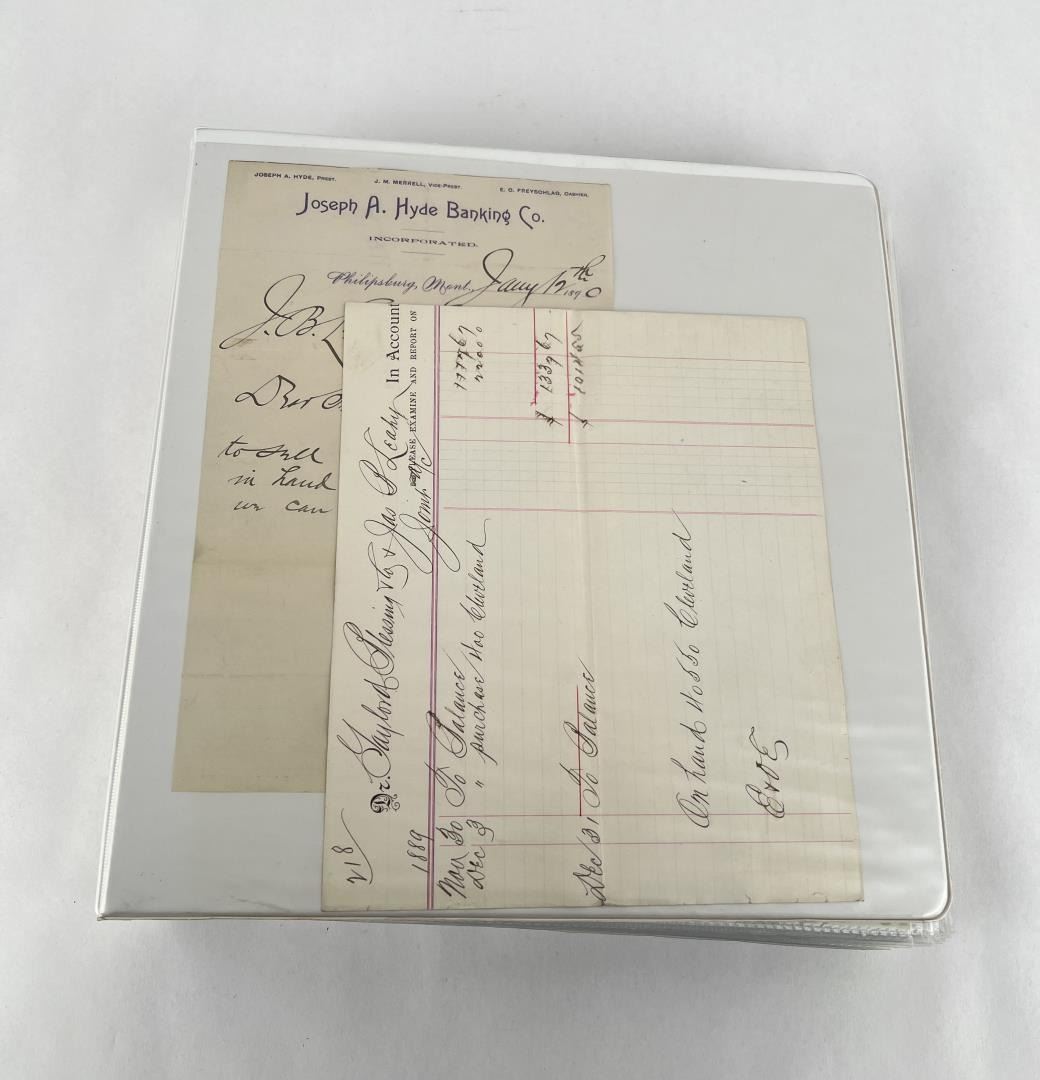 JOSEPH A. HYDE, PREST. J. M. MERRELL, VICE-PREST. E. C. FREYSCHLAG, CASHIER.
Joseph A. Hyde Banking Co.
INCORPORATED.
Philipsburg, Mont., Jany 12th 1890
J. B.
Dear
to sell
in hand
we can
218
Dr. Gaylord Blessing & Co & Jas P Leahy In Account
PLEASE EXAMINE AND REPORT ON
Joint a/c
1889
Nov 30 To Balance
Dec 3 " purchase 400 Cleveland
$ 13397
Dec 31 To Balance
On hand 40550 Cleveland
E&OE